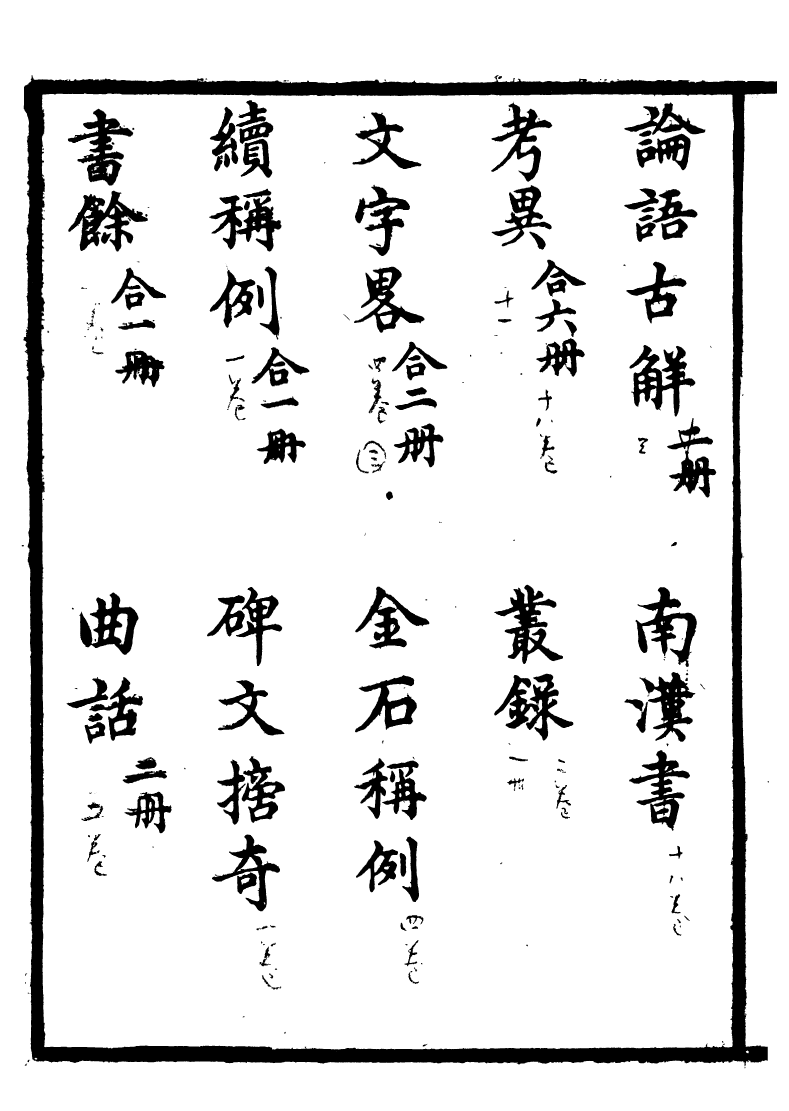 論語古解
冊
南漢書
十八卷
考異
合六冊
十八卷
十一
叢錄
二卷
一冊
文字畧
合二冊
四卷
三
金石稱例
四卷
續稱例
合一冊
一卷
碑文摘奇
一卷
書餘
合一冊
曲話
二冊
五卷